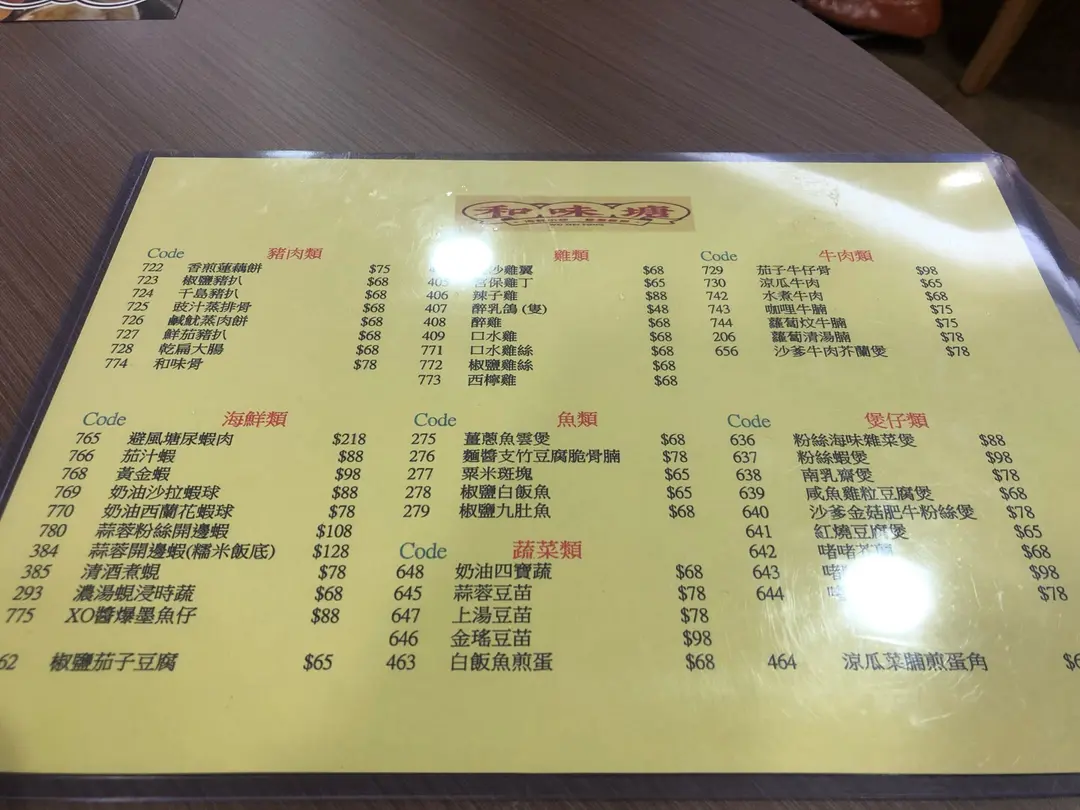 和味塘
Code 豬肉類
722 香煎蓮藕餅 $75
723 椒鹽豬扒 $68
724 千島豬扒 $68
725 豉汁蒸排骨 $68
726 鹹魷蒸肉餅 $68
727 鮮茄豬扒 $68
728 乾扁大腸 $68
774 和味骨 $78
雞類
沙雞翼 $68
405 宮保雞丁 $65
406 辣子雞 $88
407 醉乳鴿 (隻) $48
408 醉雞 $68
409 口水雞 $68
771 口水雞絲 $68
772 椒鹽雞絲 $68
773 西檸雞 $68
Code 牛肉類
729 茄子牛仔骨 $98
730 涼瓜牛肉 $65
742 水煮牛肉 $68
743 咖哩牛腩 $75
744 蘿蔔炆牛腩 $75
206 蘿蔔清湯腩 $78
656 沙爹牛肉芥蘭煲 $78
Code 海鮮類
765 避風塘尿蝦肉 $218
766 茄汁蝦 $88
768 黃金蝦 $98
769 奶油沙拉蝦球 $88
770 奶油西蘭花蝦球 $78
780 蒜蓉粉絲開邊蝦 $108
384 蒜蓉開邊蝦(糯米飯底) $128
385 清酒煮蜆 $78
293 濃湯蜆浸時蔬 $68
775 XO醬爆墨魚仔 $88
62 椒鹽茄子豆腐 $65
Code 魚類
275 薑蔥魚雲煲 $68
276 麵醬支竹豆腐脆骨腩 $78
277 粟米斑塊 $65
278 椒鹽白飯魚 $65
279 椒鹽九肚魚 $68
Code 蔬菜類
648 奶油四寶蔬 $68
645 蒜蓉豆苗 $78
647 上湯豆苗 $78
646 金瑤豆苗 $98
463 白飯魚煎蛋 $68
Code 煲仔類
636 粉絲海味雜菜煲 $88
637 粉絲蝦煲 $98
638 南乳齋煲 $78
639 咸魚雞粒豆腐煲 $68
640 沙爹金菇肥牛粉絲煲 $78
641 紅燒豆腐煲 $65
642 啫啫芥蘭 $68
643 啫 $98
644 $78
464 涼瓜菜脯煎蛋角 $6